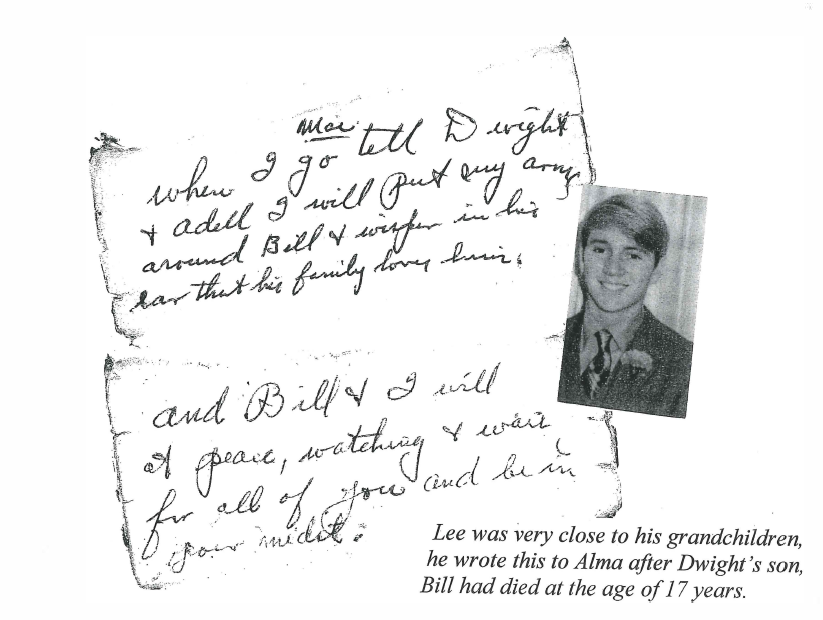 Mae
when I go tell Dwight
& Adell I will put my arms
around Bill & wisper in his
ear that his family loves him.
and Bill & I will
at peace, watching & wait
for all of you and be in
your midst.
Lee was very close to his grandchildren,
he wrote this to Alma after Dwight's son,
Bill had died at the age of 17 years.